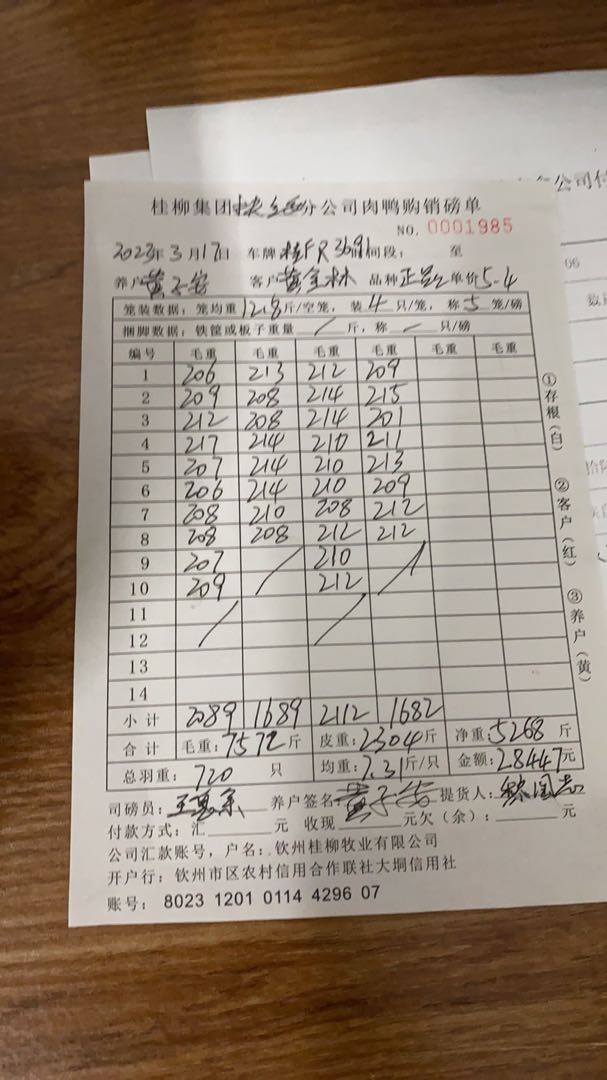 公司
06
桂柳集团分公司肉鸭购销磅单
NO. 0001985
2023年3月17日 车牌桂FR3691时间段: 至
养户黄子安 客户黄金林 品种正 单价5.4
笼装数据:笼均重12.8斤/空笼,装4只/笼,称5笼/磅
捆脚数据:铁筐或板子重量/斤,称/只/磅
编号 毛重 毛重 毛重 毛重 毛重 毛重
1 206 213 212 209
2 209 208 214 215
3 212 208 214 201
4 217 214 210 211
5 207 214 210 213
6 206 214 210 209
7 208 210 208 212
8 208 208 212 212
9 207 / 210 /
10 209 212
11 / /
12
13
14
小计 2089 1689 2112 1682
合计 毛重:7572斤 皮重:2304斤 净重:5268斤
总羽重:720只 均重:7.31斤/只 金额:28447元
司磅员: 养户签名黄子安 提货人:
付款方式:汇 元 收现 元欠(余): 元
公司汇款账号,户名:钦州桂柳牧业有限公司
开户行:钦州市区农村信用合作联社大垌信用社
账号: 8023 1201 0114 4296 07
①存根(白) ②客户(红) ③养户(黄)